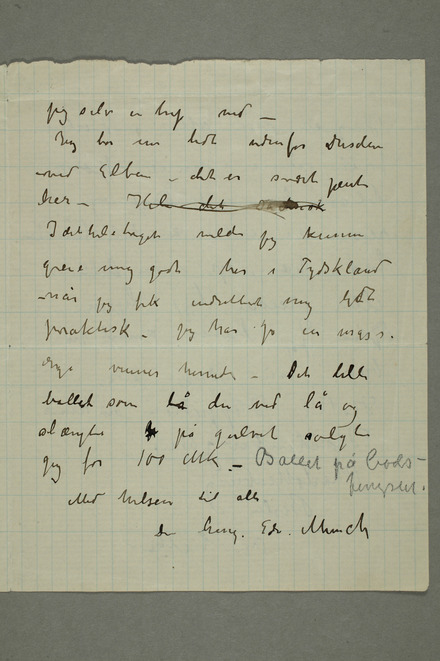 jeg selv en tur ned –
Jeg bor nu lidt udenfor Dresden
– ved Elben – det er svært pent
her –
I det hele taget vilde jeg kunne
greie mig godt her i Tydskland
– når jeg fik indrettet mig lidt
praktisk – jeg har jo en masse
venner – Det lille
billedet som lå der ned lå og
slængte på gulvet solgte
jeg for 100 Mk. – Ballet på Gods-
Med hilsen til alle
Din heng. Edv. Munch